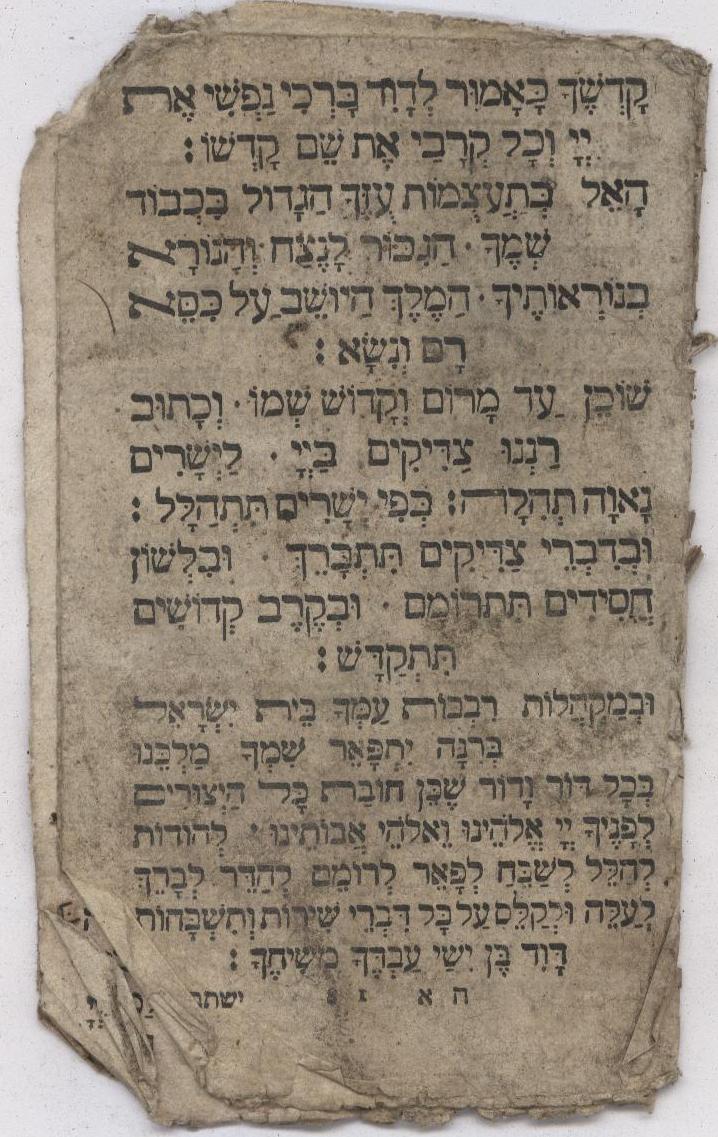 קָדְשֶׁךָ כָּאָמוּר לְדָוִד בָּרְכִי נַפְשִׁי אֶת
יְיָ וְכָל קְרָבַי אֶת שֵׁם קָדְשׁוֹ :
הָאֵל בְּתַעֲצֻמוֹת עֻזֶּךָ הַגָּדוֹל בִּכְבוֹד
שְׁמֶךָ · הַגִּבּוֹר לָנֶצַח וְהַנּוֹרָא
בְּנוֹרְאוֹתֶיךָ · הַמֶּלֶךְ הַיּוֹשֵׁב עַל כִּסֵּא
רָם וְנִשָּׂא :
שׁוֹכֵן עַד מָרוֹם וְקָדוֹשׁ שְׁמוֹ · וְכָתוּב
רַנְּנוּ צַדִּיקִים בַּיְיָ · לַיְשָׁרִים
נָאוָה תְהִלָּה : כְּפִי יְשָׁרִים תִּתְהַלָּל :
וּבְדִבְרֵי צַדִּיקִים תִּתְבָּרֵךְ · וּבִלְשׁוֹן
חֲסִידִים תִּתְרוֹמָם · וּבְקֶרֶב קְדוֹשִׁים
תִּתְקַדָּשׁ :
וּבְמַקְהֲלוֹת רִבְבוֹת עַמְּךָ בֵּית יִשְׂרָאֵל
בְּרִנָּה יִתְפָּאֵר שִׁמְךָ מַלְכֵּנוּ
בְּכָל דּוֹר וָדוֹר שֶׁכֵּן חוֹבַת כָּל הַיְצוּרִים
לְפָנֶיךָ יְיָ אֱלֹהֵינוּ וֵאלֹהֵי אֲבוֹתֵינוּ · לְהוֹדוֹת
לְהַלֵּל לְשַׁבֵּחַ לְפָאֵר לְרוֹמֵם לְהַדֵּר לְבָרֵךְ
לְעַלֵּה וּלְקַלֵּס עַל כָּל דִּבְרֵי שִׁירוֹת וְתִשְׁבָּחוֹת
דָּוִד בֶּן יִשַׁי עַבְדְּךָ מְשִׁיחֶךָ :
ח א ז ישתבח